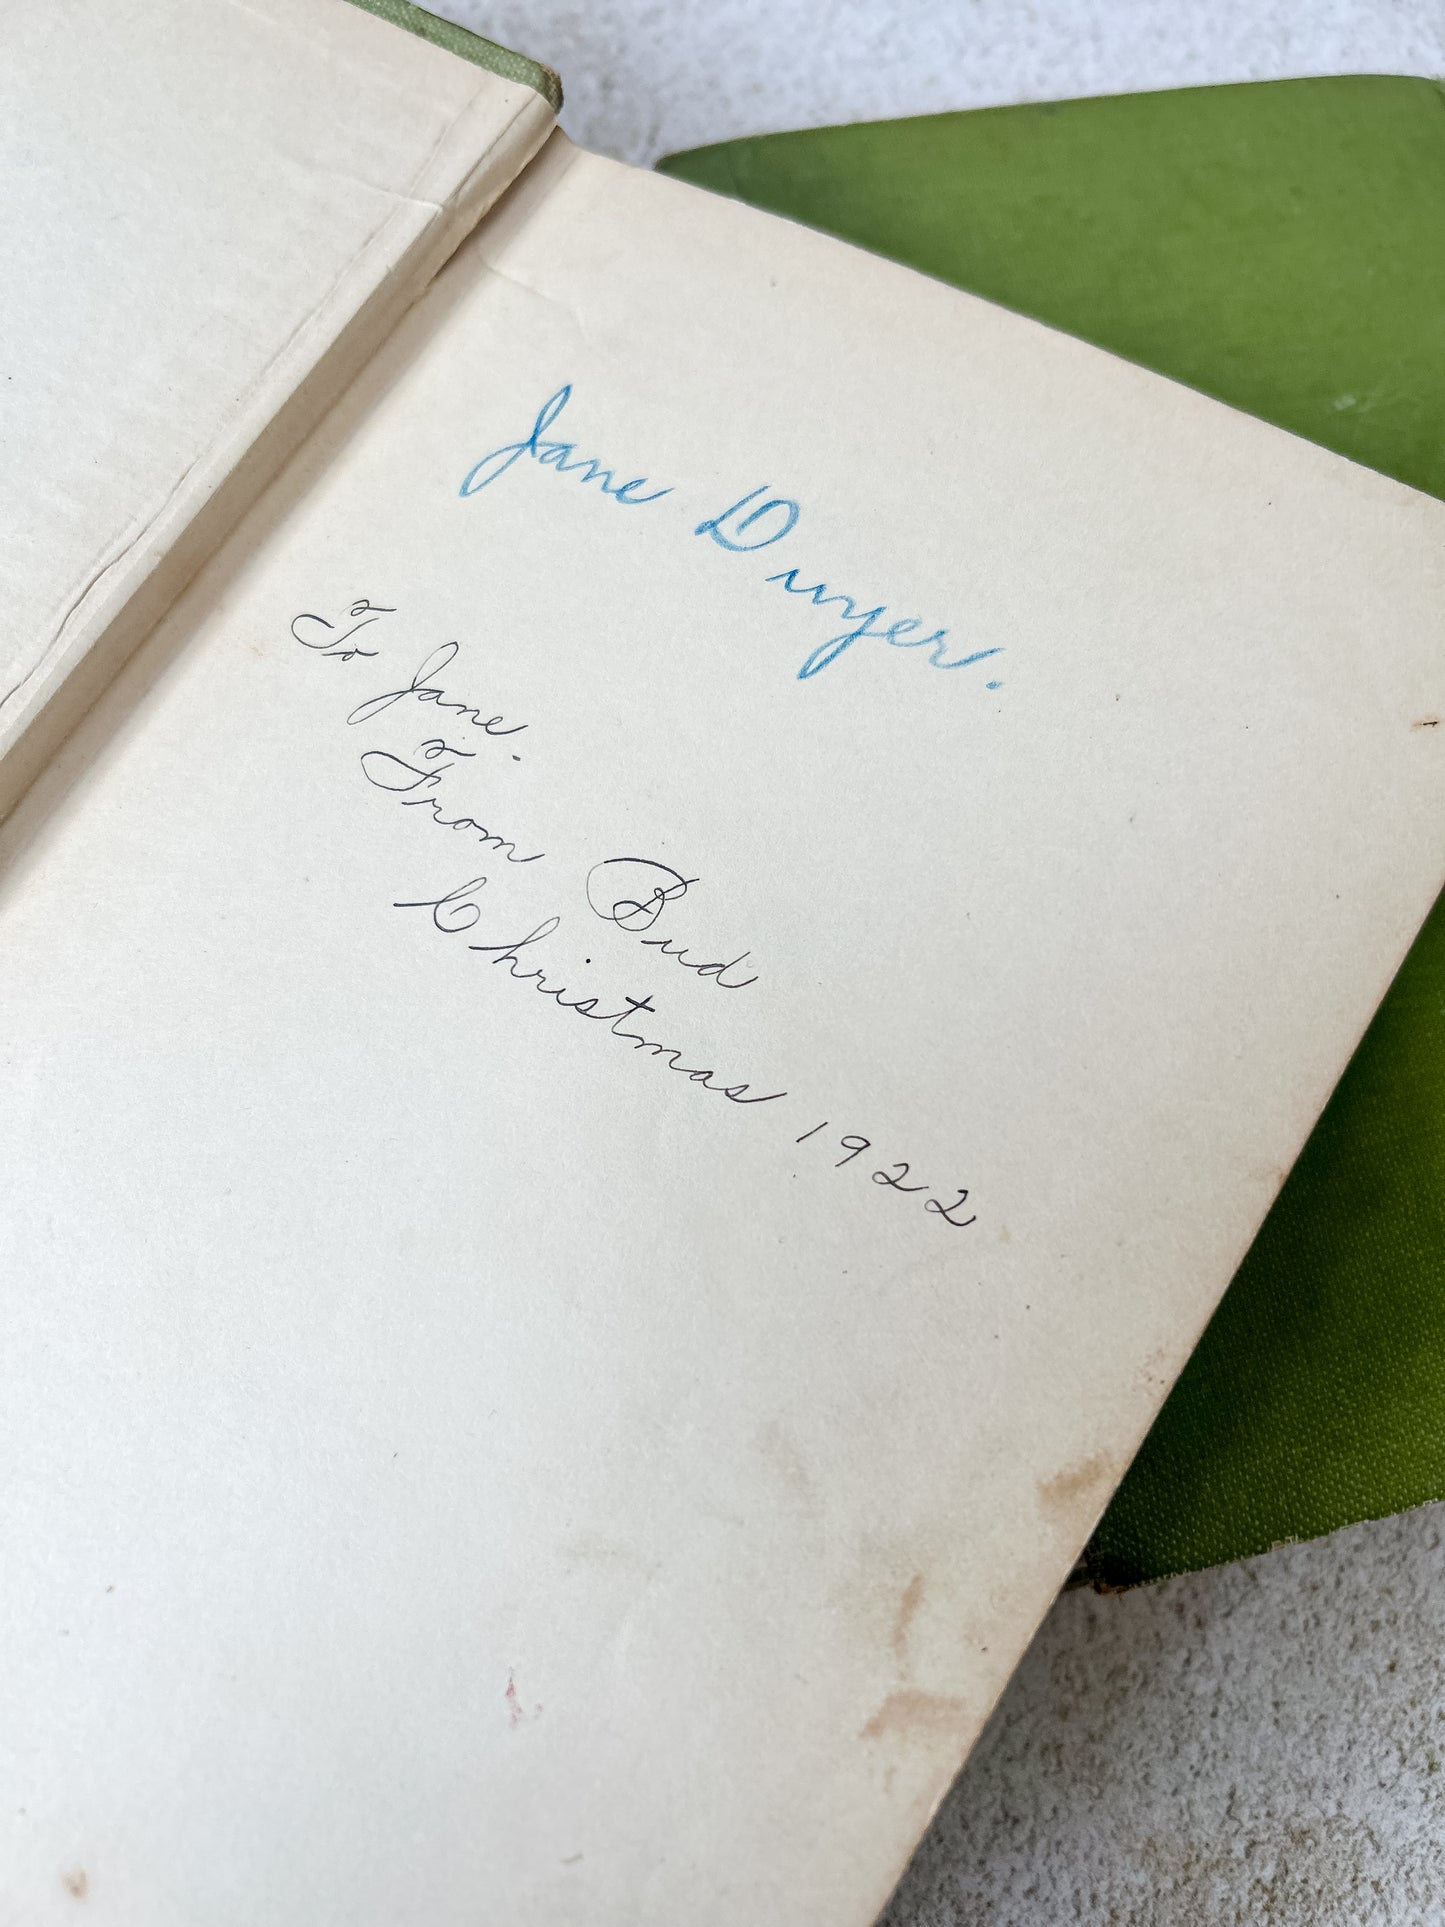 Jane Dwyer.
To Jane.
From Bud
Christmas 1922